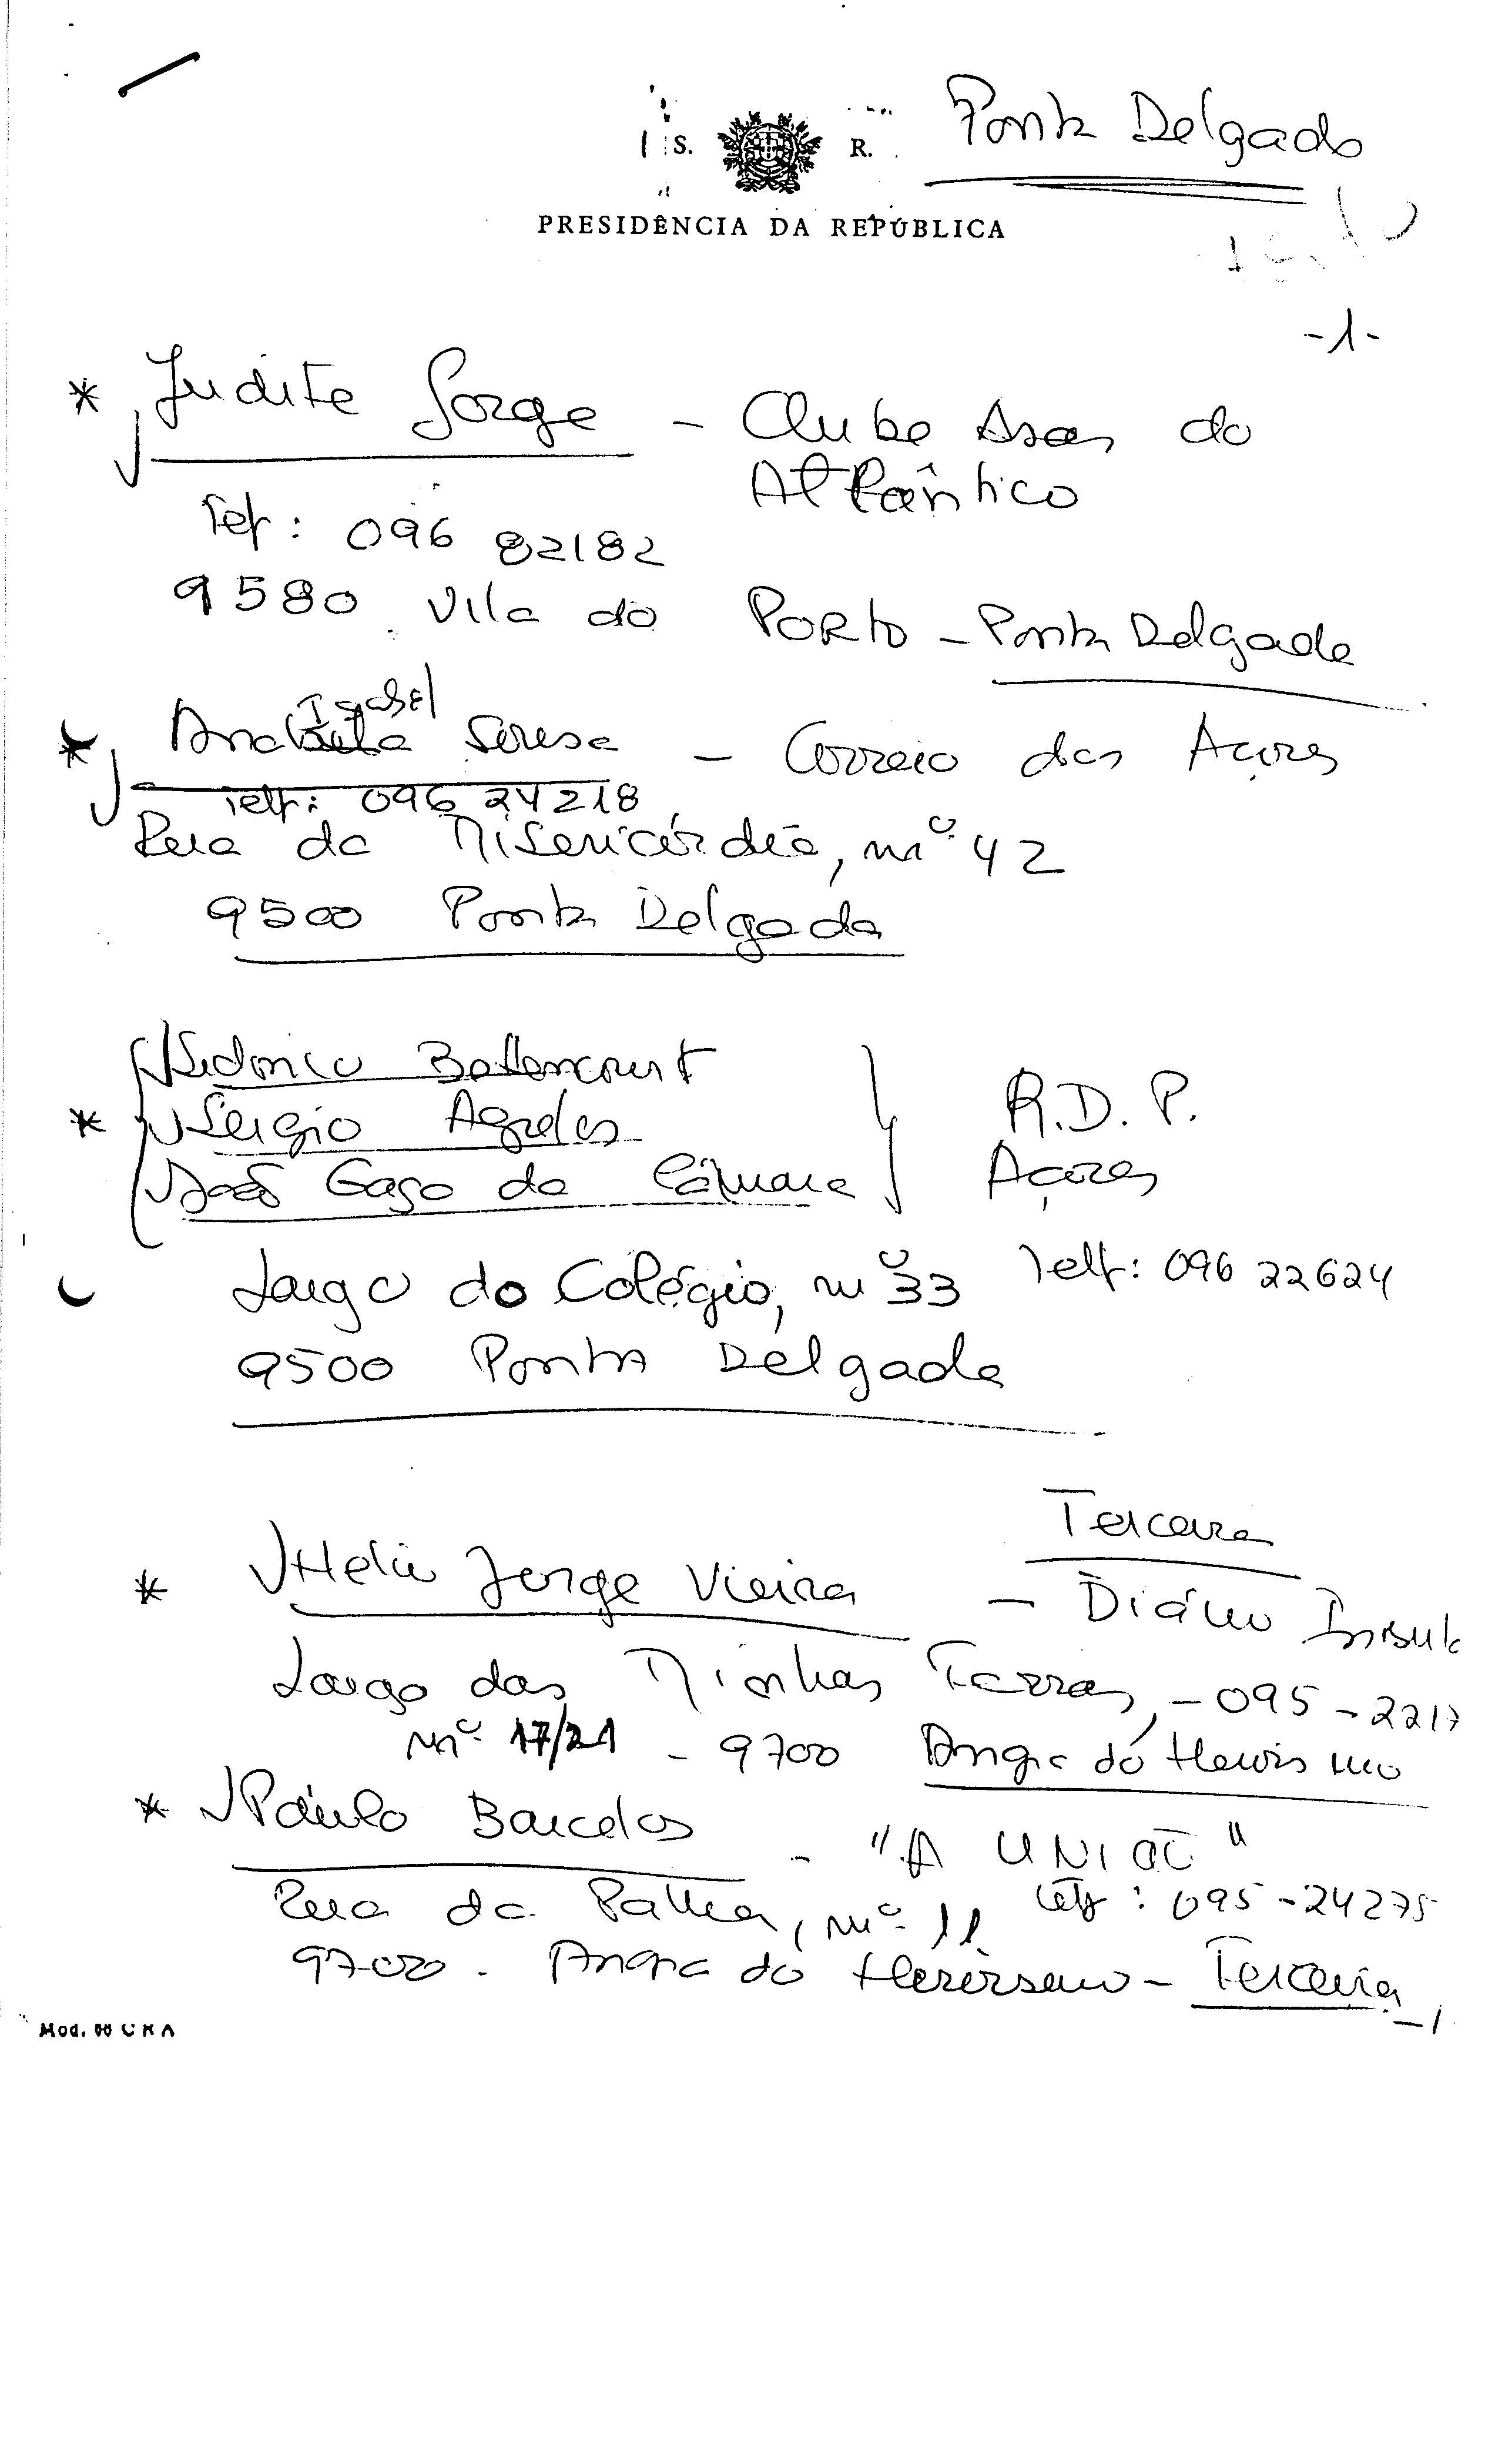 S. R.
Ponta Delgada
PRESIDÊNCIA DA REPÚBLICA
-1-
* Judite Jorge - Clube Asas do
Atlântico
Telf: 096 82182
9580 Vila do PORTO - Ponta Delgada
Isabel
* Anabela - Correio dos Açores
Telf: 096 24218
Rua da Misericórdia, nº 42
9500 Ponta Delgada
Sidónio Bettencourt
* Sérgio R.D.P.
João Gago da Câmara Açores
Largo do Colégio, nº 33 Telf: 096 22624
9500 Ponta Delgada
Terceira
* Helio Jorge Vieira - Diário Insul
Largo das Minhas Terras, - 095 - 2217
nº 17/21 - 9700 Angra do Heroismo
* Paulo Barcelos - "A UNIÃO"
Rua da Palha, nº 11 telf: 095 - 24275
9700 - Angra do Heroísmo - Terceira
Mod.